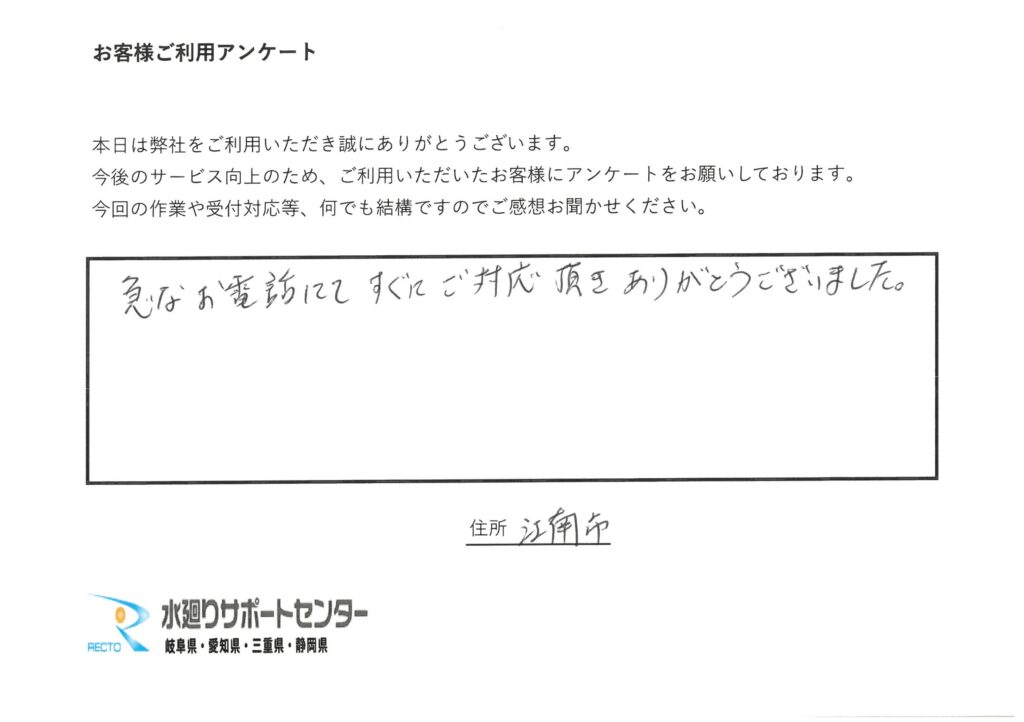 お客様ご利用アンケート
本日は弊社をご利用いただき誠にありがとうございます。
今後のサービス向上のため、ご利用いただいたお客様にアンケートをお願いしております。
今回の作業や受付対応等、何でも結構ですのでご感想お聞かせください。
急なお電話にてすぐにご対応頂きありがとうございました。
住所 江南市
RECTO
水廻りサポートセンター
岐阜県・愛知県・三重県・静岡県